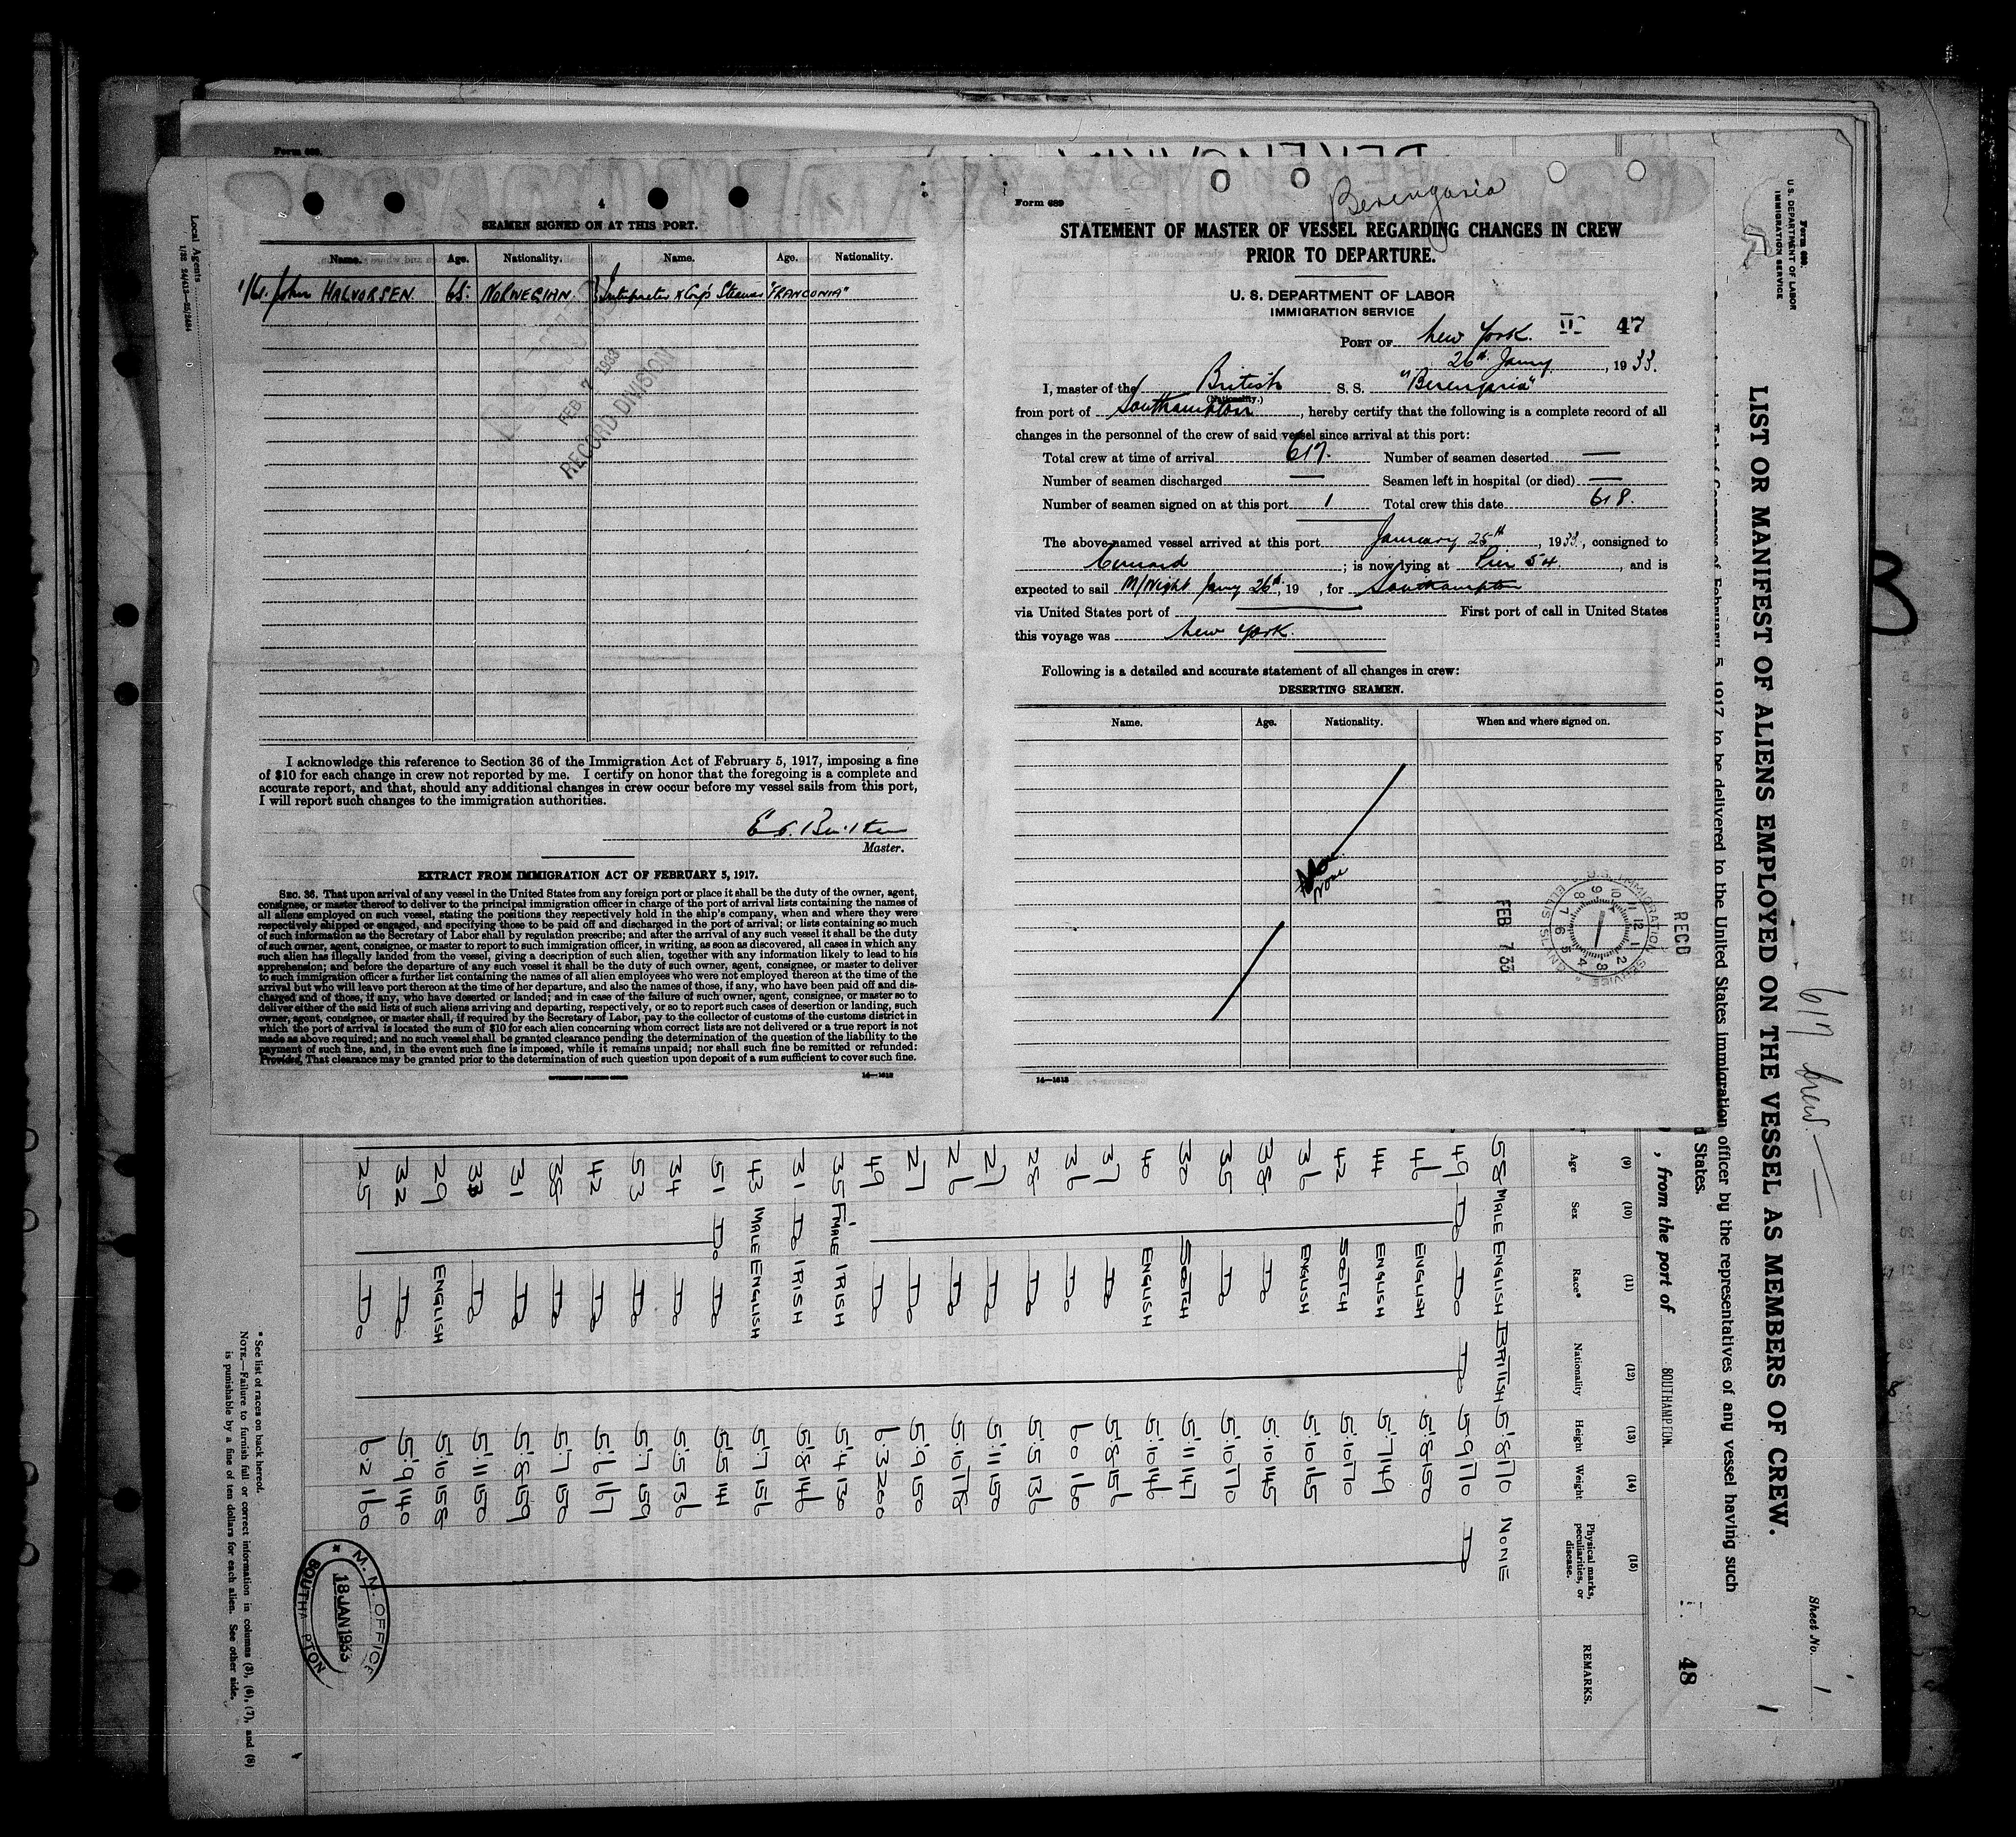 Form 689.
4
SEAMEN SIGNED ON AT THIS PORT.
Name. Age. Nationality. Name. Age. Nationality.
John HALVORSEN. 65. NORWEGIAN. Interpreter "FRANCONIA"
FEB 7 1933
RECORD DIVISION
I acknowledge this reference to Section 36 of the Immigration Act of February 5, 1917, imposing a fine
of $10 for each change in crew not reported by me. I certify on honor that the foregoing is a complete and
accurate report, and that, should any additional changes in crew occur before my vessel sails from this port,
I will report such changes to the immigration authorities.
Master.
EXTRACT FROM IMMIGRATION ACT OF FEBRUARY 5, 1917.
SEC. 36. That upon arrival of any vessel in the United States from any foreign port or place it shall be the duty of the owner, agent,
consignee, or master thereof to deliver to the principal immigration officer in charge of the port of arrival lists containing the names of
all aliens employed on such vessel, stating the positions they respectively hold in the ship's company, when and where they were
respectively shipped or engaged, and specifying those to be paid off and discharged in the port of arrival; or lists containing so much
of such information as the Secretary of Labor shall by regulation prescribe; and after the arrival of any such vessel it shall be the duty
of such owner, agent, consignee, or master to report to such immigration officer, in writing, as soon as discovered, all cases in which any
such alien has illegally landed from the vessel, giving a description of such alien, together with any information likely to lead to his
apprehension; and before the departure of any such vessel it shall be the duty of such owner, agent, consignee, or master to deliver
to such immigration officer a further list containing the names of all alien employees who were not employed thereon at the time of the
arrival but who will leave port thereon at the time of her departure, and also the names of those, if any, who have been paid off and dis-
charged and of those, if any, who have deserted or landed; and in case of the failure of such owner, agent, consignee, or master so to
deliver either of the said lists of such aliens arriving and departing, respectively, or so to report such cases of desertion or landing, such
owner, agent, consignee, or master shall, if required by the Secretary of Labor, pay to the collector of customs of the customs district in
which the port of arrival is located the sum of $10 for each alien concerning whom correct lists are not delivered or a true report is not
made as above required; and no such vessel shall be granted clearance pending the determination of the question of the liability to the
payment of such fine, and, in the event such fine is imposed, while it remains unpaid; nor shall such fine be remitted or refunded:
Provided, That clearance may be granted prior to the determination of such question upon deposit of a sum sufficient to cover such fine.
GOVERNMENT PRINTING OFFICE
14—1612
Form 689
Berengaria
STATEMENT OF MASTER OF VESSEL REGARDING CHANGES IN CREW
PRIOR TO DEPARTURE.
U. S. DEPARTMENT OF LABOR
IMMIGRATION SERVICE
47
PORT OF New York.
26th Jany, 1933.
I, master of the British S. S. "Berengaria"
(Nationality.)
from port of Southampton, hereby certify that the following is a complete record of all
changes in the personnel of the crew of said vessel since arrival at this port:
Total crew at time of arrival 617. Number of seamen deserted —
Number of seamen discharged — Seamen left in hospital (or died) —
Number of seamen signed on at this port 1 Total crew this date 618.
The above-named vessel arrived at this port January 25th, 1933, consigned to
Cunard; is now lying at Pier 54, and is
expected to sail M/Night Jany 26th, 19 , for Southampton
via United States port of — First port of call in United States
this voyage was New York.
Following is a detailed and accurate statement of all changes in crew:
DESERTING SEAMEN.
Name. Age. Nationality. When and where signed on.
None
14—1612
RECD
FEB 7 33
U.S. IMMIGRATION SERVICE
ELLIS ISLAND
Form 689.
U.S. DEPARTMENT OF LABOR
IMMIGRATION SERVICE
617 Crew.
Sheet No. 1
LIST OR MANIFEST OF ALIENS EMPLOYED ON THE VESSEL AS MEMBERS OF CREW.
of February 5, 1917 to be delivered to the United States immigration officer by the representatives of any vessel having such
States.
, from the port of SOUTHAMPTON.
48
(9) (10) (11) (12) (13) (14) (15)
Age Sex Race* Nationality Height Weight Physical marks, peculiarities, or disease. REMARKS.
58 MALE ENGLISH BRITISH 5'8 170 NONE
49 Do Do Do 5'9 170 Do
46 ENGLISH 5'8 150
44 ENGLISH 5'7 149
42 SCOTCH 5'10 170
36 ENGLISH 5'10 165
38 Do 5'10 145
35 Do 5'10 170
30 SCOTCH 5'11 147
40 ENGLISH 5'10 146
37 Do 5'8 156
36 Do 6'0 160
28 Do 5'5 136
27 Do 5'11 150
26 Do 5'10 178
27 Do 5'9 150
49 Do 6'3 200
35 F'MALE IRISH 5'4 130
31 Do IRISH 5'8 146
43 MALE ENGLISH 5'7 156
51 Do Do 5'5 141
34 Do 5'5 136
53 Do 5'7 159
42 Do 5'6 167
38 Do 5'7 150
31 Do 5'8 159
33 Do 5'11 150
29 ENGLISH 5'10 158
32 Do 5'9 140
25 Do 6'2 160
M. N. OFFICE
18 JAN 1933
SOUTHAMPTON
* See list of races on back hereof.
NOTE.—Failure to furnish full or correct information in columns (3), (6), (7), and (8)
is punishable by a fine of ten dollars for each alien. See other side.
Local Agents